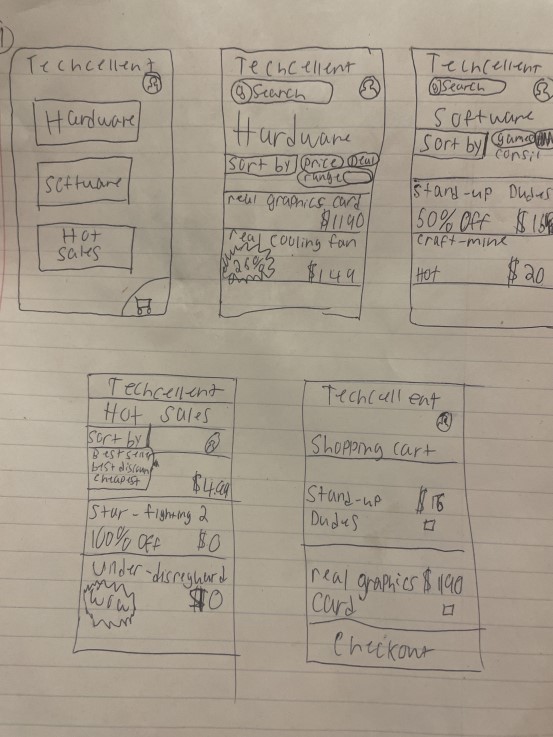 1
Techcellent
Hardware
Software
Hot
Sales
Techcellent
Search
Hardware
Sort by price Deal
range
real graphics card
$1190
real cooling fan
26% $149
Techcellent
Search
Software
Sort by games
consil
Stand-up Dudes
50% Off
craft-mine
Hot $20
Techcellent
Hot Sales
Sort by
Best seller
best discoun
cheapest
Star-fighting 2
100% Off $0
Under-disreguard
WOW $0
Techcellent
Shopping cart
Stand-up $16
Dudes
real graphics $1190
card
Checkout